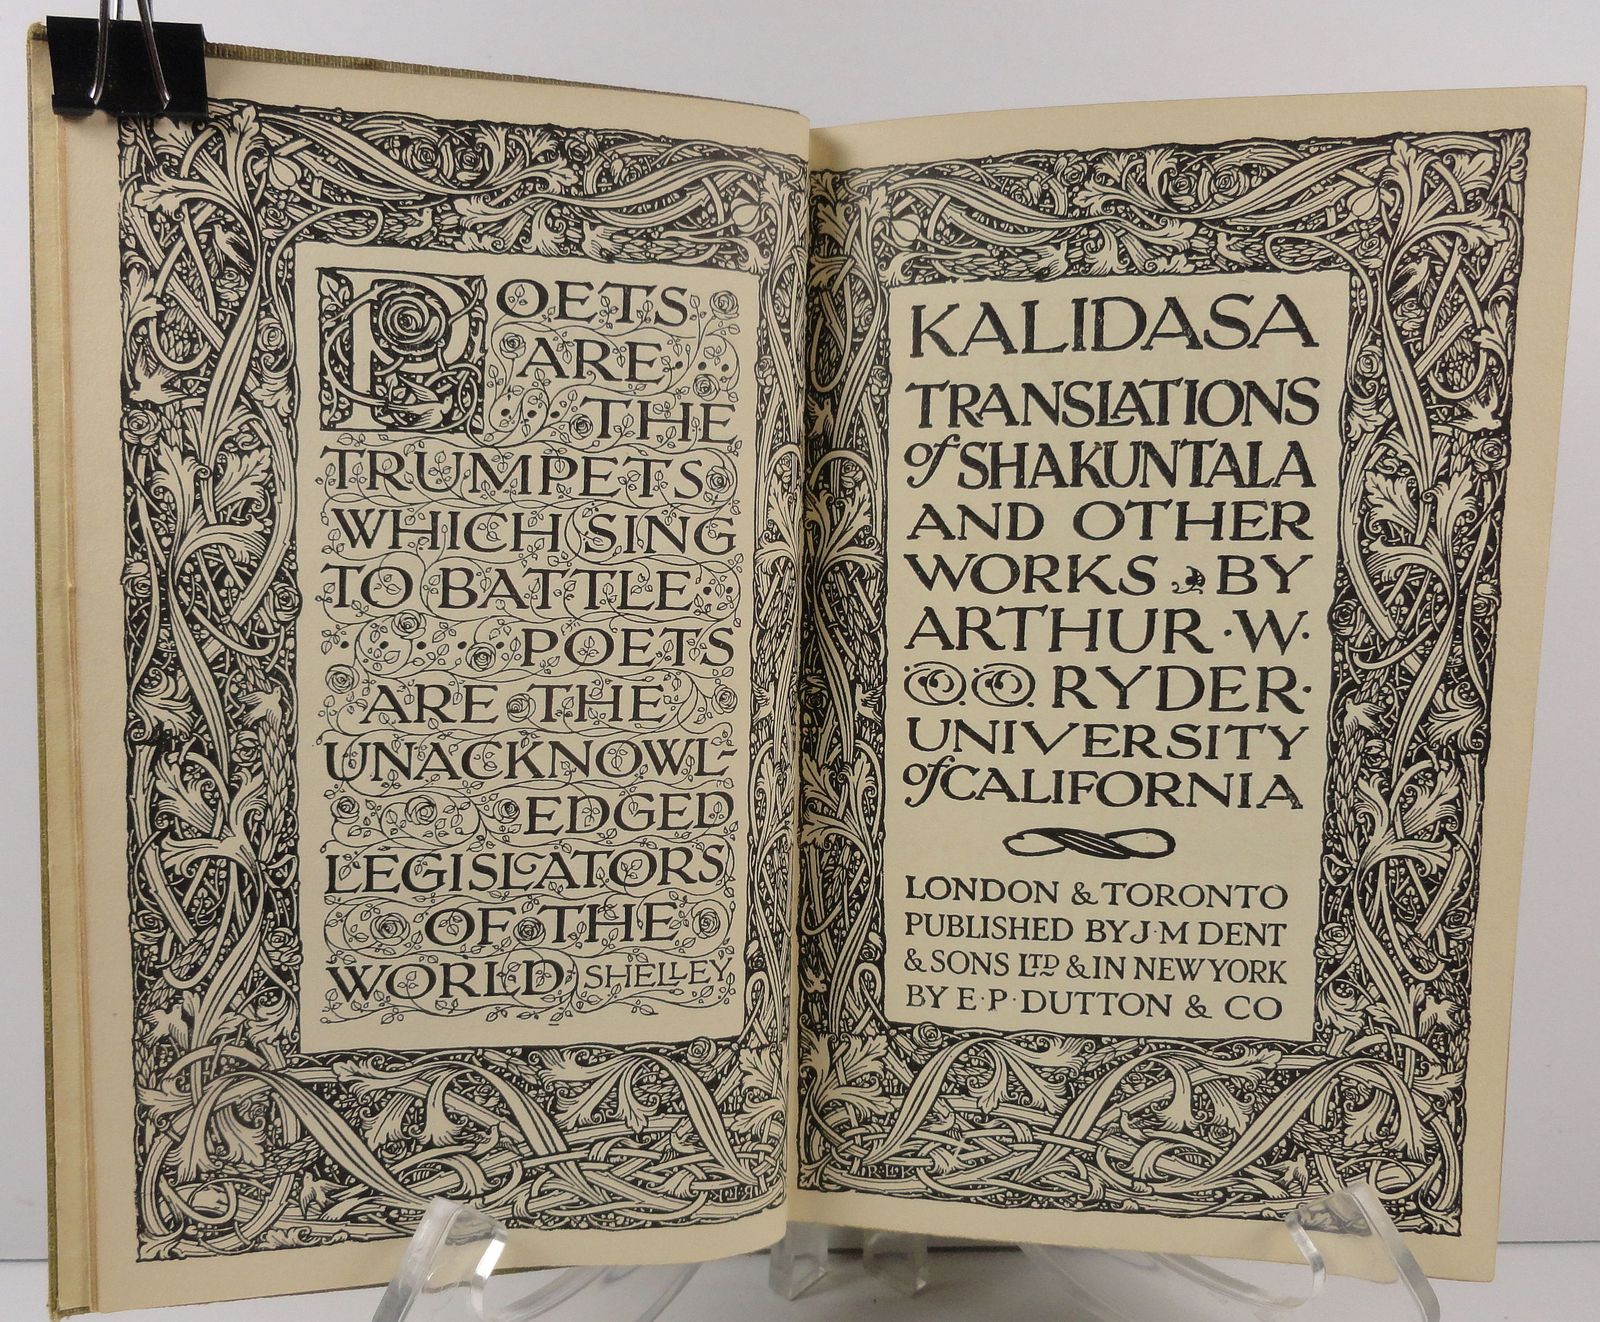 POETS
ARE
THE
TRUMPETS
WHICH SING
TO BATTLE
POETS
ARE THE
UNACKNOWL-
EDGED
LEGISLATORS
OF THE
WORLD SHELLEY
KALIDASA
TRANSLATIONS
of SHAKUNTALA
AND OTHER
WORKS BY
ARTHUR · W ·
RYDER ·
UNIVERSITY
of CALIFORNIA
LONDON & TORONTO
PUBLISHED BY J · M DENT
& SONS LTD & IN NEW YORK
BY E · P · DUTTON & CO